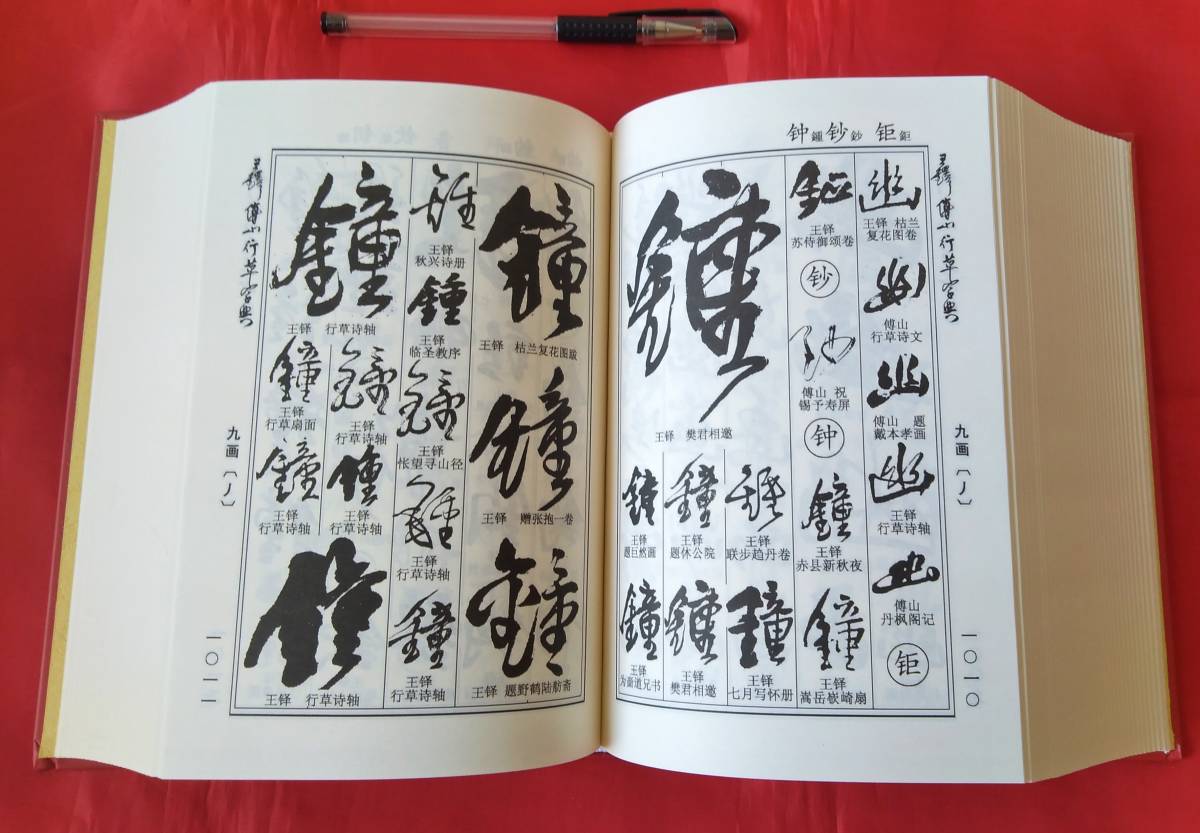 钟鍾钞鈔 钜鉅
王鐸傅山行草字典
九画〔丿〕
一〇一〇
幽
王铎 枯兰
复花图卷
幽
傅山
行草诗文
幽
傅山 题
戴本孝画
幽
王铎
行草诗轴
幽
傅山
丹枫阁记
钜
鉅
王铎
苏侍御颂卷
钞
鈔
傅山 祝
锡予寿屏
钟
鐘
王铎
赤县新秋夜
鐘
王铎
嵩岳嵚崎扇
王铎 樊君相邀
王铎
联步趋丹卷
鐘
王铎
七月写怀册
鐘
王铎
题休公院
王铎
樊君相邀
鐘
王铎
题巨然画
鐘
王铎
为啬道兄书
鐘
王铎 枯兰复花图跋
鐘
王铎 赠张抱一卷
鐘
王铎 题野鹤陆舫斋
王铎
秋兴诗册
鍾
王铎
临圣教序
王铎
怅望寻山径
王铎
行草诗轴
鐘
王铎
行草诗轴
鐘
王铎 行草诗轴
王铎
行草诗轴
王铎
行草诗轴
鐘
王铎
行草扇面
鐘
王铎
行草诗轴
王铎 行草诗轴
王鐸傅山行草字典
九画〔丿〕
一〇一一